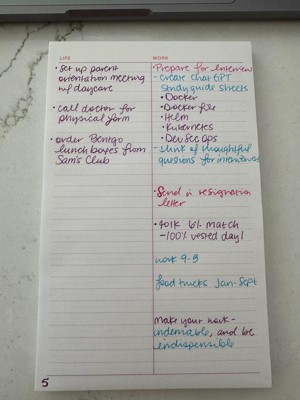 LIFE
• set up parent
orientation meeting
w/ daycare
• call doctor for
physical form
• order Bentgo
lunch boxes from
Sam's Club
WORK
• Prepare for Interview
- create Chat GPT
Study guide sheets
• Docker
• Docker file
• Helm
• Kubernetes
• Dev Sec Ops
- think of thoughtful
questions for interviewer
• Send in resignation
letter
• 401K 6% match
- 100% vested day 1
work 9-5
food trucks Jan-Sept
make your work
and be
5